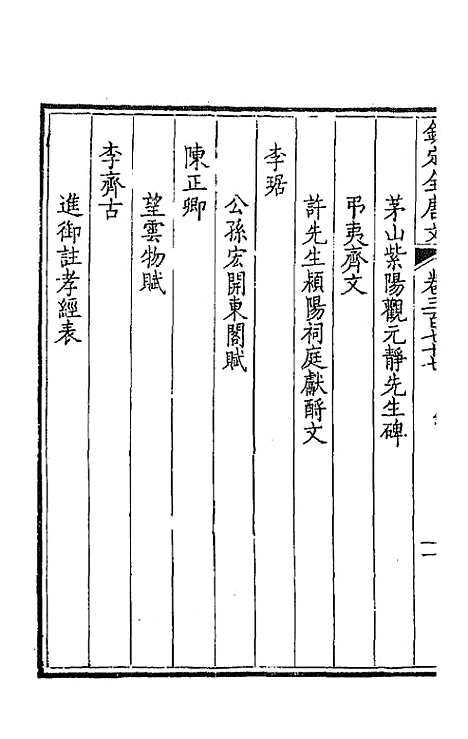 欽定全唐文 卷三百七十七
茅山紫陽觀元靜先生碑
弔夷齊文
許先生潁陽祠庭獻酹文
李琚
公孫宏開東閣賦
陳正卿
望雲物賦
李齊古
進御註孝經表